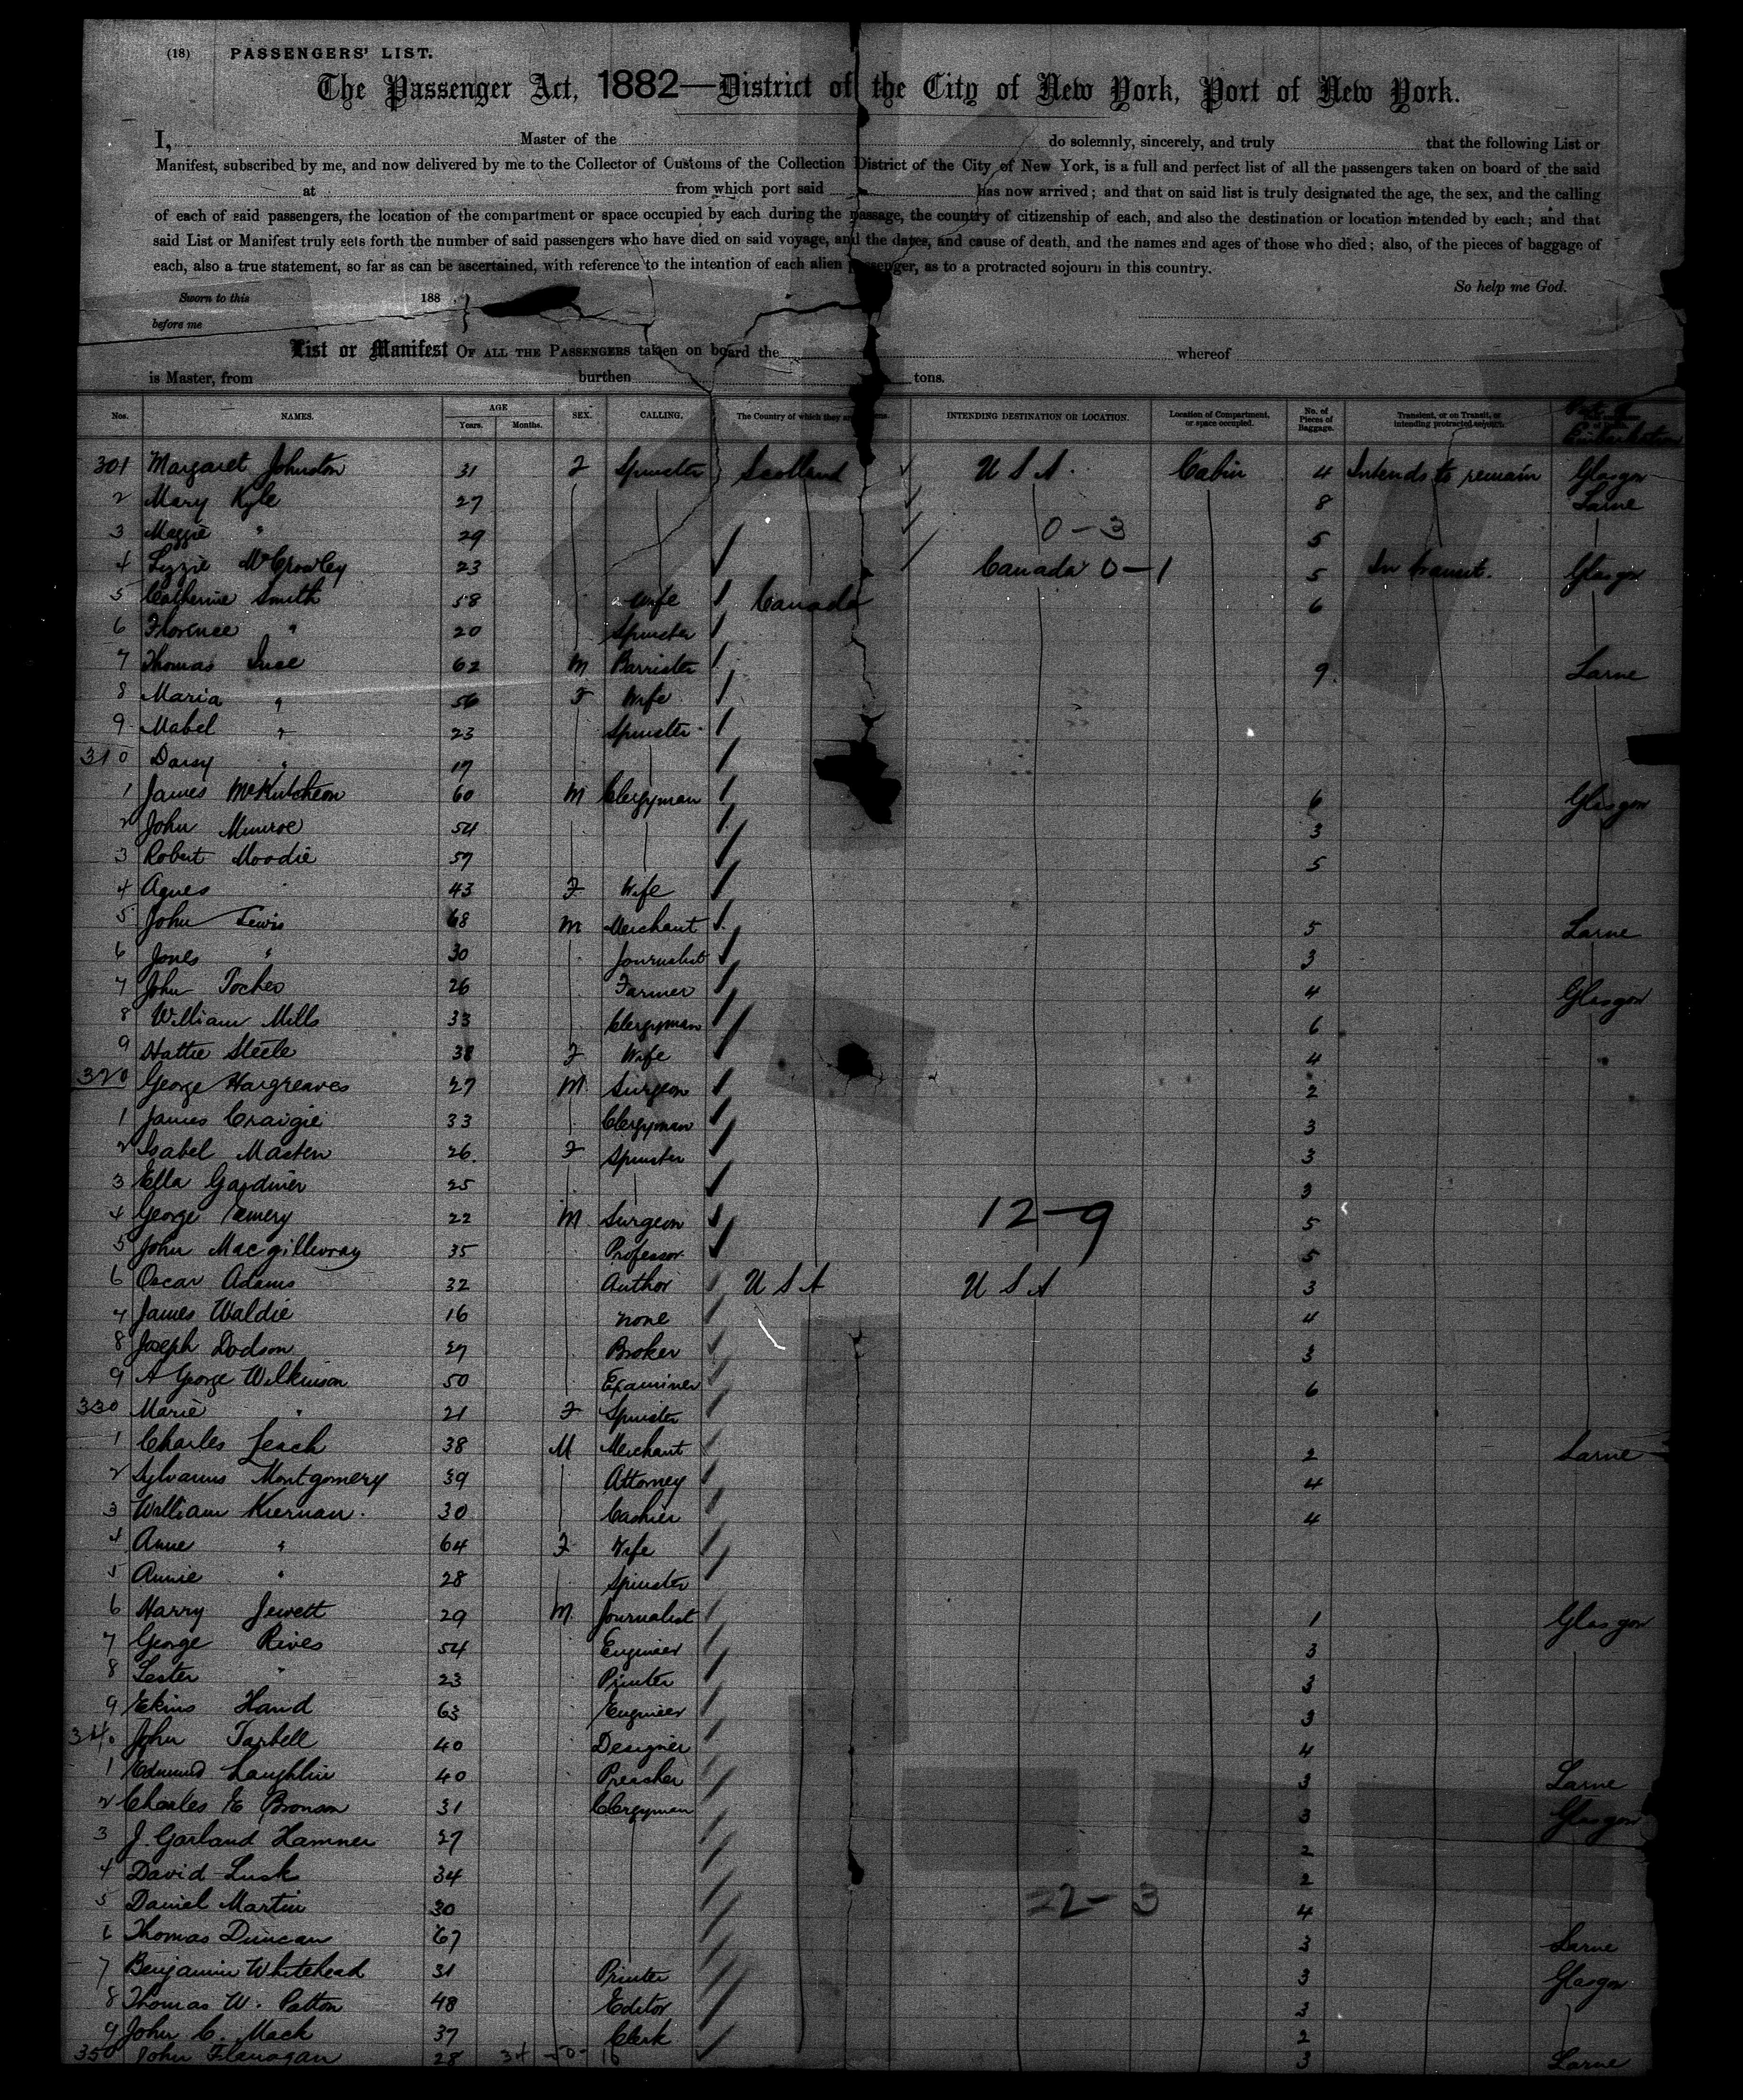 (18) PASSENGERS' LIST.
The Passenger Act, 1882—District of the City of New York, Port of New York.
I, Master of the do solemnly, sincerely, and truly that the following List or
Manifest, subscribed by me, and now delivered by me to the Collector of Customs of the Collection District of the City of New York, is a full and perfect list of all the passengers taken on board of the said
at from which port said has now arrived; and that on said list is truly designated the age, the sex, and the calling
of each of said passengers, the location of the compartment or space occupied by each during the passage, the country of citizenship of each, and also the destination or location intended by each; and that
said List or Manifest truly sets forth the number of said passengers who have died on said voyage, and the dates, and cause of death, and the names and ages of those who died; also, of the pieces of baggage of
each, also a true statement, so far as can be ascertained, with reference to the intention of each alien passenger, as to a protracted sojourn in this country.
So help me God.
Sworn to this 188
before me
List or Manifest OF ALL THE PASSENGERS taken on board the whereof
is Master, from burthen tons.
Nos. NAMES. AGE Years. Months. SEX. CALLING. The Country of which they are citizens. INTENDING DESTINATION OR LOCATION. Location of Compartment, or space occupied. No. of Pieces of Baggage. Transient, or on Transit, or intending protracted sojourn.
301 Margaret Johnston 31 F Spinster Scotland U S A. Cabin 4 Intends to remain Glasgow
2 Mary Kyle 27 8 Larne
3 Maggie " 29 0-3 5
4 Lizzie McCrowley 23 Canada 0-1 5 In transit. Glasgow
5 Catherine Smith 58 Wife Canada 6
6 Florence " 20 Spinster
7 Thomas 62 M Barrister 9 Larne
8 Maria " 56 F Wife
9 Mabel " 23 Spinster
310 Daisy " 17
1 James McKutcheon 60 M Clergyman 6 Glasgow
2 John Munroe 54 3
3 Robert Moodie 57 5
4 Agnes " 43 F Wife
5 John Lewis 68 M Merchant 5 Larne
6 Jones " 30 Journalist 3
7 John Tocher 26 Farmer 4 Glasgow
8 William Mills 33 Clergyman 6
9 Hattie Steele 38 F Wife 4
320 George Hargreaves 27 M Surgeon 2
1 James Craigie 33 Clergyman 3
2 Isabel Masten 26. F Spinster 3
3 Ella Gardiner 25 3
4 George Emery 22 M Surgeon 12-9 5
5 John Macgillivray 35 Professor 5
6 Oscar Adams 32 Author U S A U S A 3
7 James Waldie 16 none 4
8 Joseph Dodson 27 Broker 3
9 A George Wilkinson 50 Examiner 6
330 Marie " 21 F Spinster
1 Charles Leach 38 M Merchant 2 Larne
2 Sylvanus Montgomery 39 Attorney 4
3 William Kiernan. 30 Cashier 4
4 Anne " 64 F Wife
5 Annie " 28 Spinster
6 Harry Jewett 29 M Journalist 1 Glasgow
7 George Rives 54 Engineer 3
8 Lester " 23 Printer 3
9 Ekins Hand 63 Engineer 3
340 John Tarbell 40 Designer 4
1 Edmund Laughlin 40 Preacher 3 Larne
2 Charles E Bronson 31 Clergyman 3 Glasgow
3 J. Garland Hamner 27 2
4 David Lusk 34 2
5 Daniel Martin 30 22-3 4
6 Thomas Duncan 67 3 Larne
7 Benjamin Whitehead 31 Printer 3 Glasgow
8 Thomas W. Patton 48 Editor 3
9 John C. Mack 37 Clerk 2
350 John Flanagan 28 3 Larne